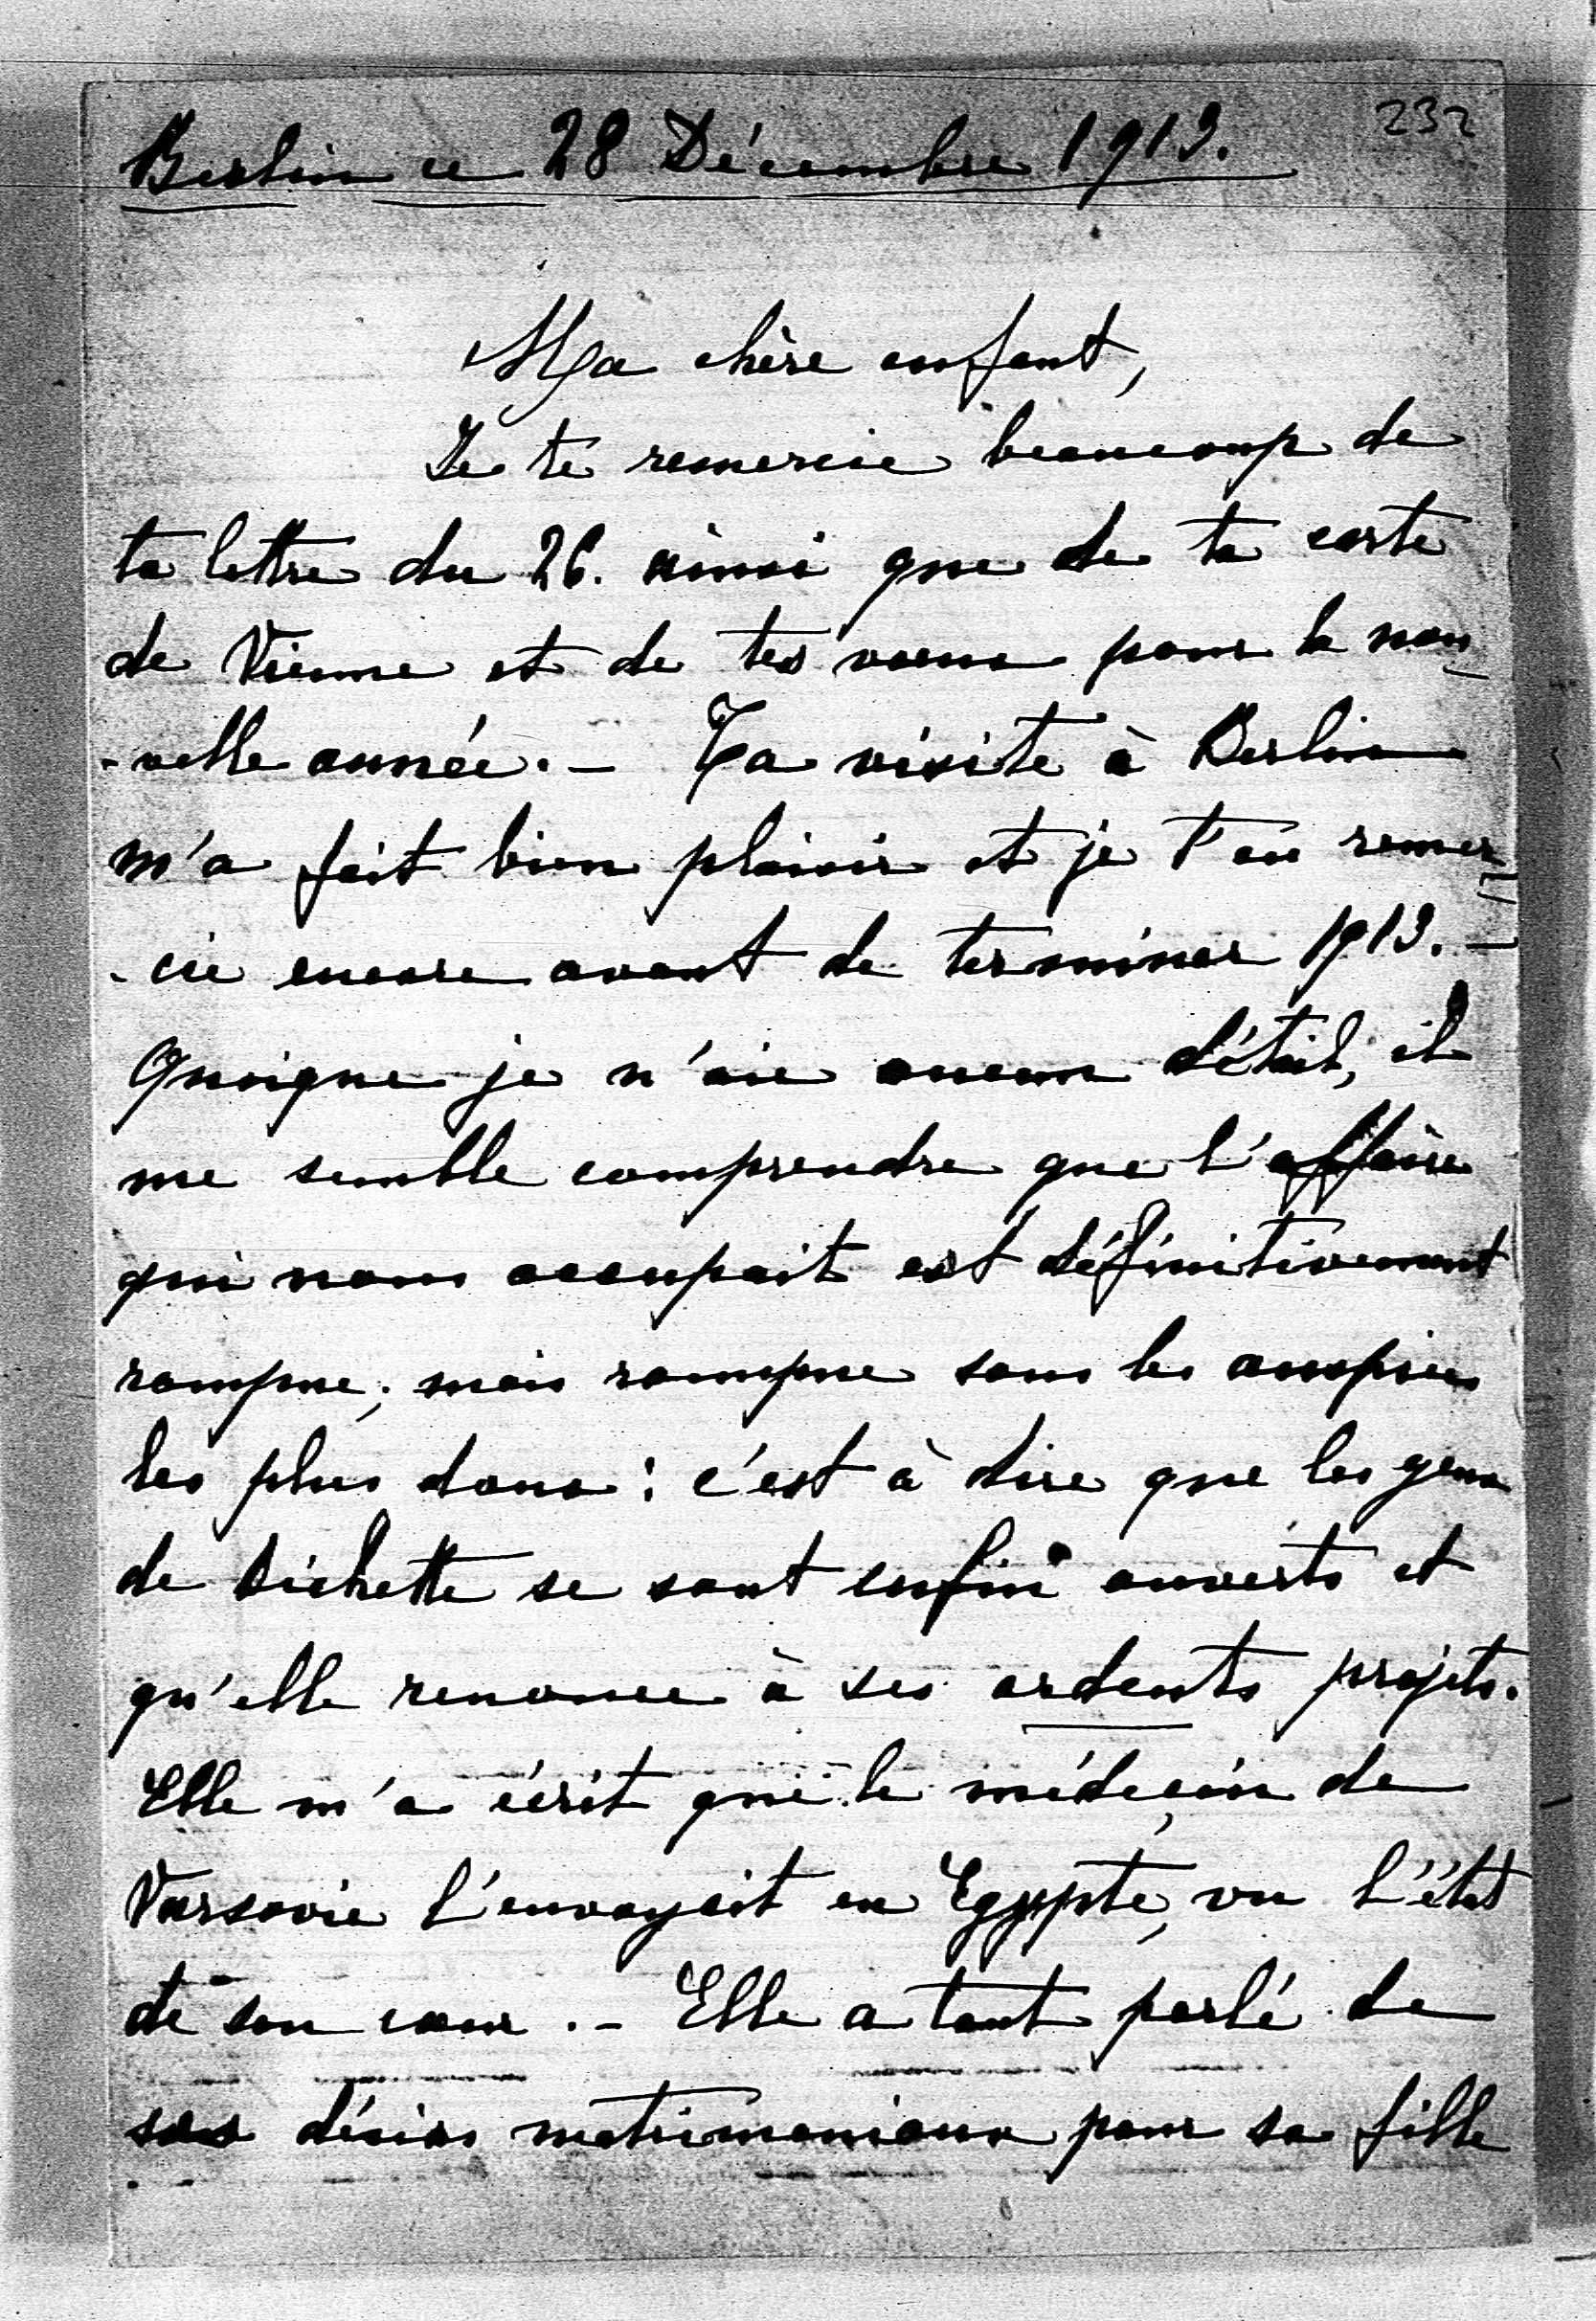 232
Berlin ce 28 Décembre 1913.
Ma chère enfant,
Je te remercie beaucoup de
ta lettre du 26. ainsi que de ta carte
de Vienne et de tes voeux pour la nou-
-velle année. - Ta visite à Berlin
m'a fait bien plaisir et je t'en remer=
-cie encore avant de terminer 1913. -
Quoique je n'aie aucun détail, il
me semble comprendre que l'affaire
qui nous occupait est définitivement
rompue; mais rompue sous les auspices
les plus doux: c'est à dire que les yeux
de Bichette se sont enfin ouverts et
qu'elle renonce à ses ardents projets.
Elle m'a écrit que le médecin de
Varsovie l'envoyait en Egypte, vu l'état
de son coeur. - Elle a tant parlé de
ses désirs matrimoniaux pour sa fille